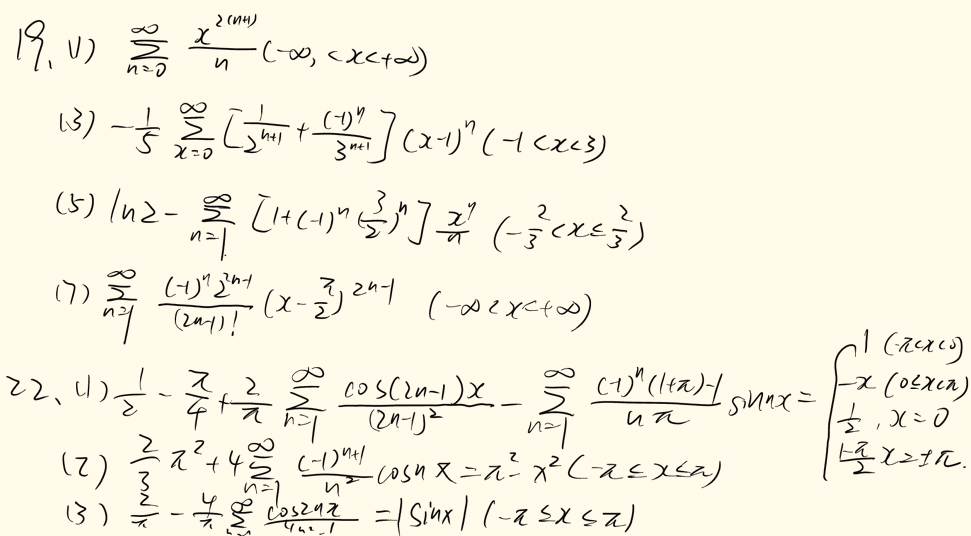 19. (1) $\sum_{n=0}^{\infty} \frac{x^{2(n+1)}}{n}$ (-∞, < x < +∞)
(3) $-\frac{1}{5} \sum_{x=0}^{\infty} \left[\frac{1}{2^{n+1}} + \frac{(-1)^n}{3^{n+1}}\right] (x-1)^n$ (-1 < x < 3)
(5) $\ln 2 - \sum_{n=1}^{\infty} \left[1+(-1)^n \left(\frac{3}{2}\right)^n\right] \frac{x^n}{n}$ $\left(-\frac{2}{3} < x \le \frac{2}{3}\right)$
(7) $\sum_{n=1}^{\infty} \frac{(-1)^n 2^{2n-1}}{(2n-1)!} \left(x-\frac{\pi}{2}\right)^{2n-1}$ (-∞ < x < +∞)
22. (1) $\frac{1}{2} - \frac{\pi}{4} + \frac{2}{\pi} \sum_{n=1}^{\infty} \frac{\cos(2n-1)x}{(2n-1)^2} - \sum_{n=1}^{\infty} \frac{(-1)^n(1+\pi)-1}{n\pi} \sin nx = \begin{cases} 1 & (-\pi<x<0) \\ -x & (0\le x<\pi) \\ \frac{1}{2}, & x=0 \\ \frac{1-\pi}{2} & x=\pm\pi. \end{cases}$
(2) $\frac{2}{3}\pi^2 + 4\sum_{n=1}^{\infty} \frac{(-1)^{n+1}}{n^2} \cos nx = \pi^2 - x^2$ (-π ≤ x ≤ π)
(3) $\frac{2}{\pi} - \frac{4}{\pi} \sum_{n=1}^{\infty} \frac{\cos 2nx}{4n^2-1} = |\sin x|$ (-π ≤ x ≤ π)